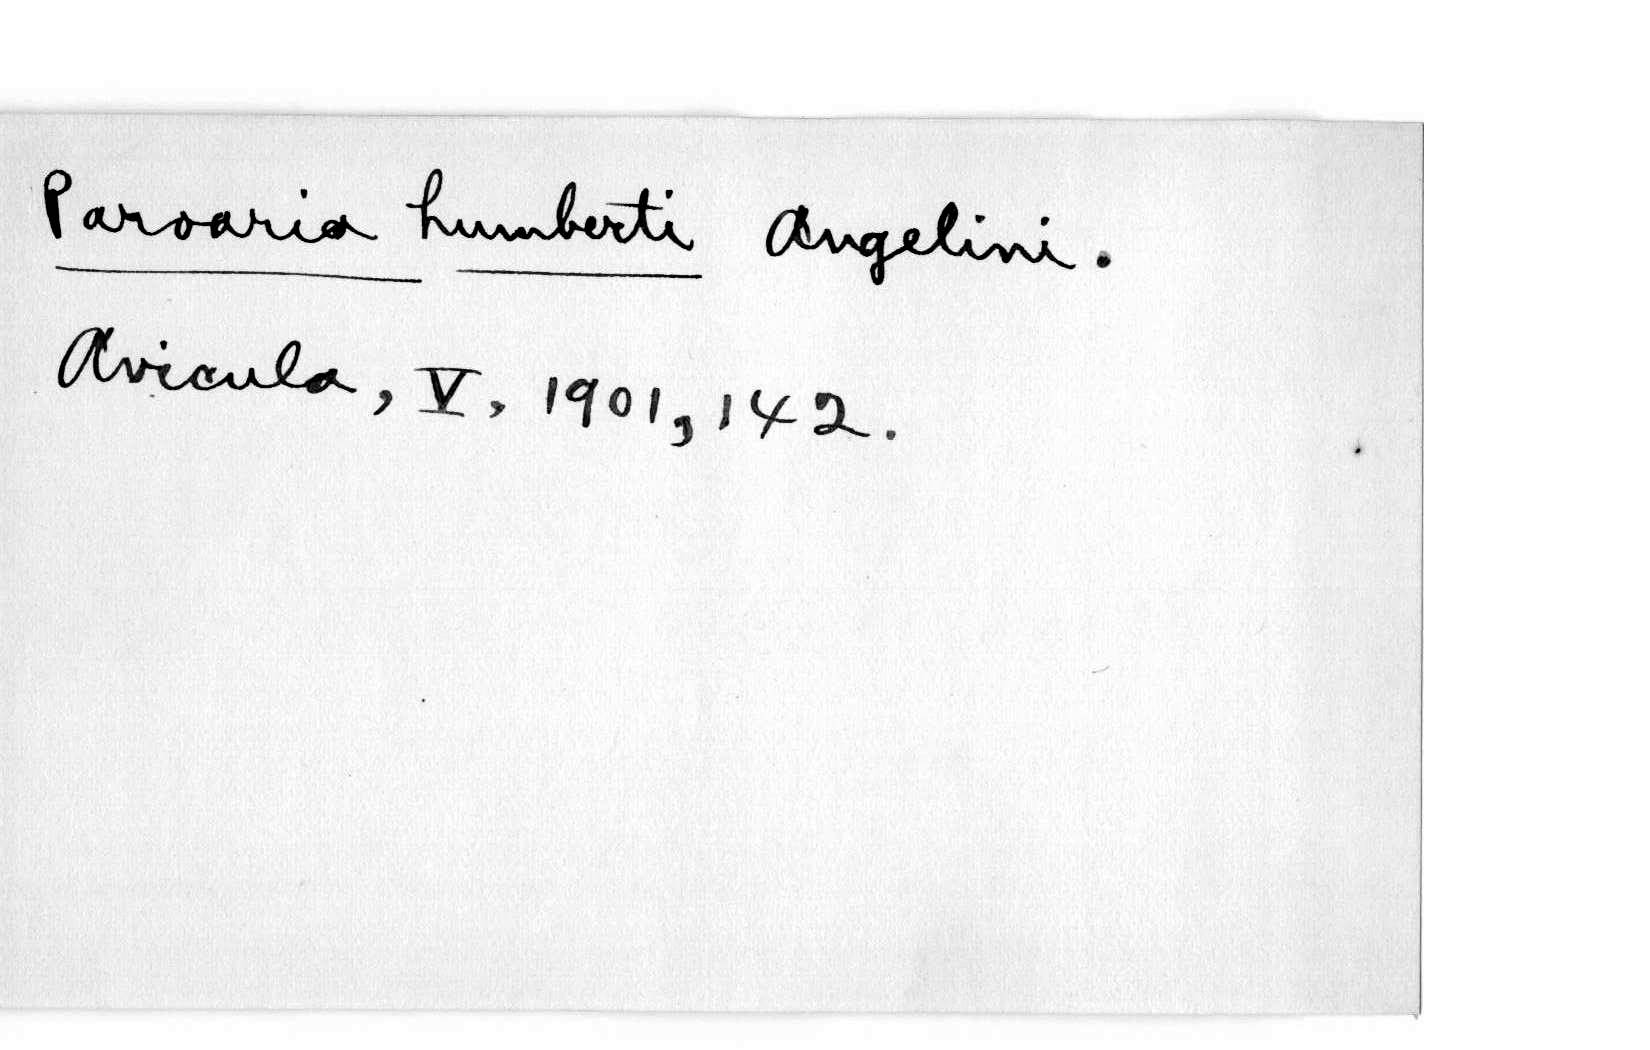 Paroaria humberti Angelini.
Avicula, V, 1901, 142.